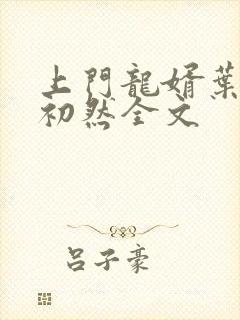 上門龍婿葉
初然全文
呂子豪